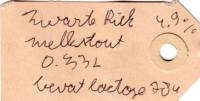 Zwarte Piek 4.9%
melkstout
0.33L
bevat lactose